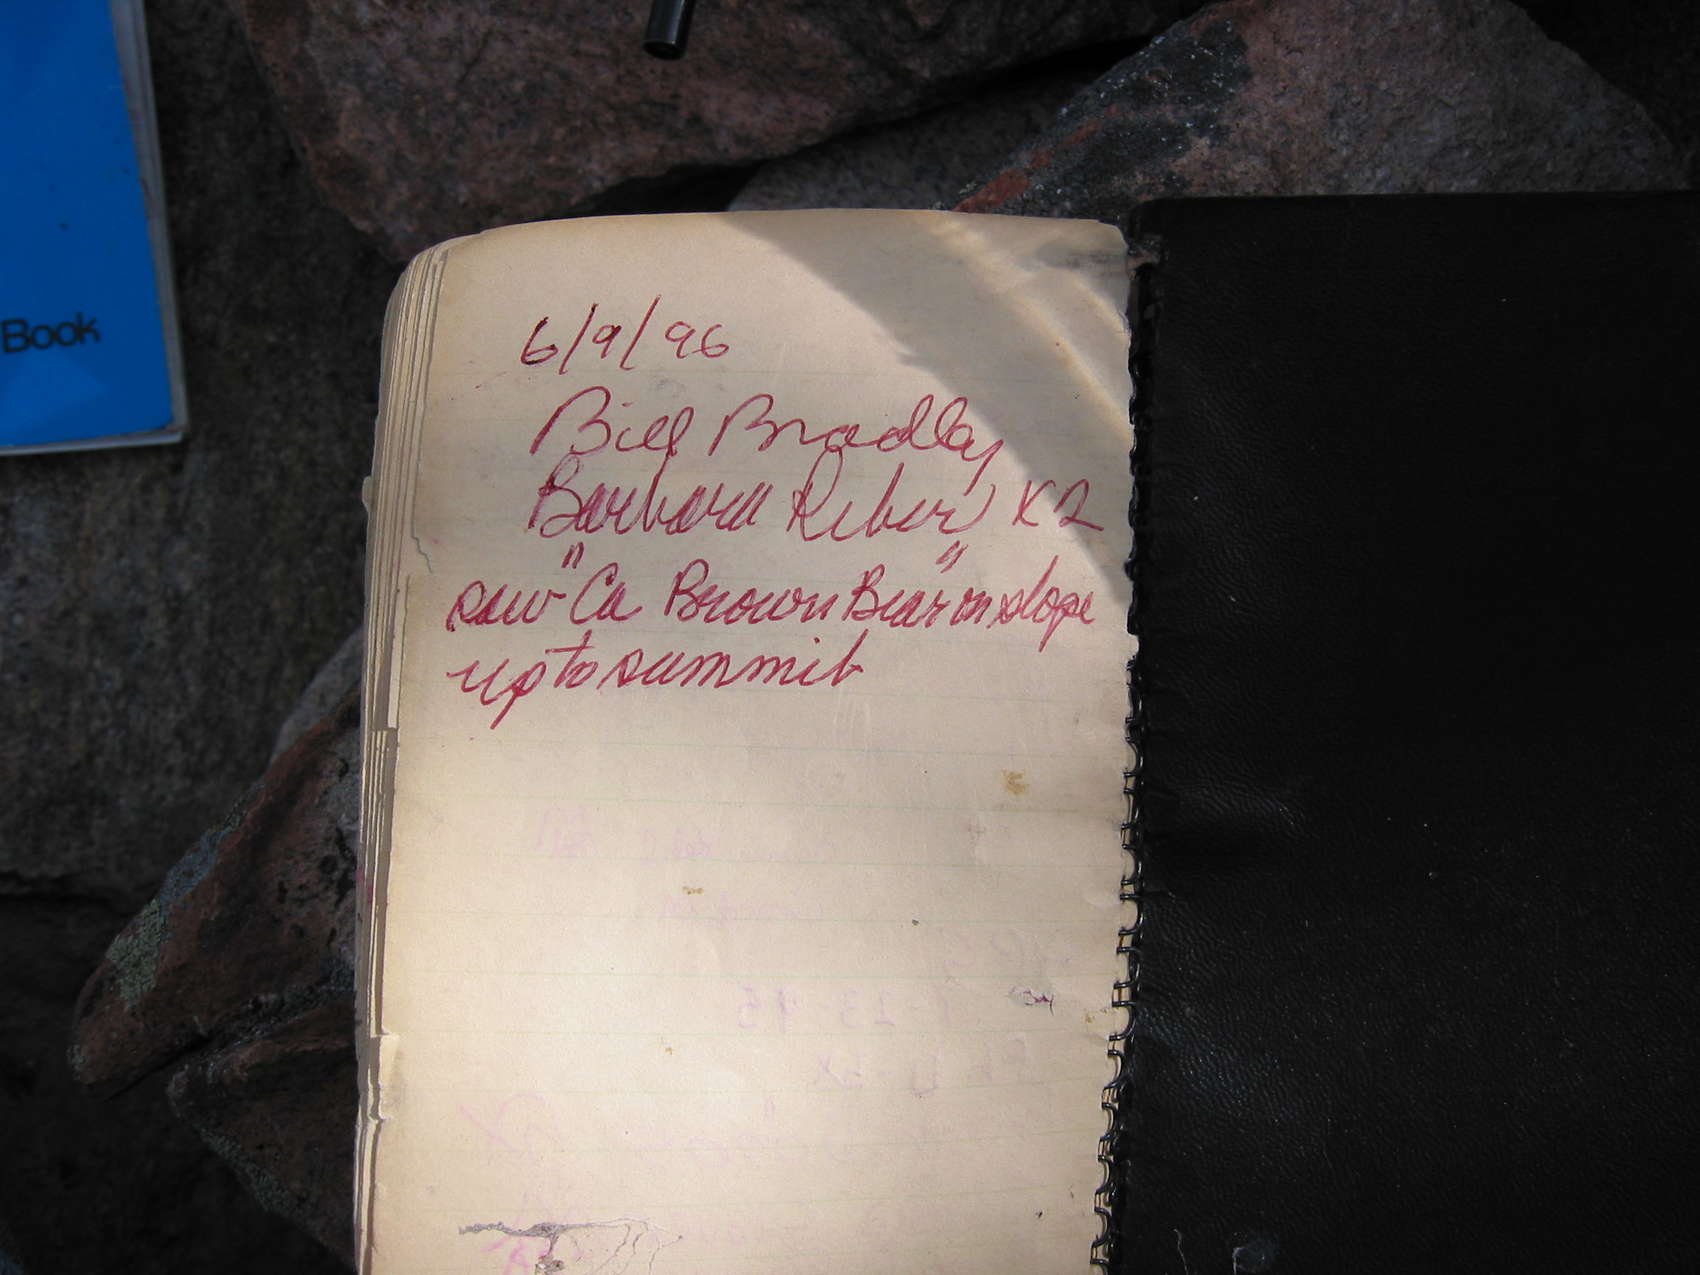 Book
6/9/96
Bill Bradley
Barbara Reber X2
saw "Ca Brown Bear" on slope
up to summit